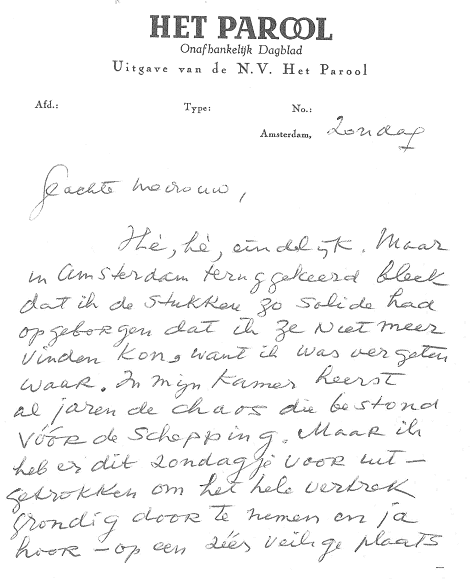 HET PAROOL
Onafhankelijk Dagblad
Uitgave van de N.V. Het Parool
Afd.: Type: No.:
Amsterdam, Zondag
Geachte mevrouw,
Hè, hè, eindelijk. Maar
in Amsterdam teruggekeerd bleek
dat ik de stukken zo solide had
opgeborgen dat ik ze niet meer
vinden kon, want ik was vergeten
waar. In mijn kamer heerst
al jaren de chaos die bestond
vóór de schepping. Maar ik
heb er dit zondagje voor uit-
getrokken om het hele vertrek
grondig door te nemen en ja
hoor - op een zéér veilige plaats